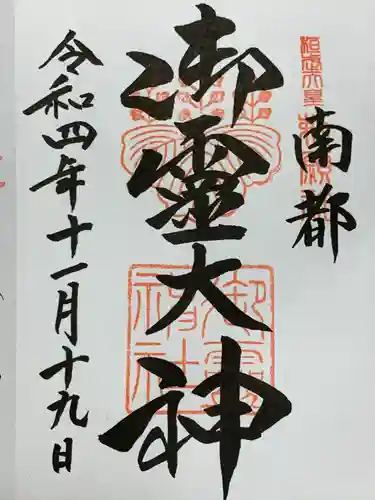 南都
御靈大神
御霊神社
令和四年十一月十九日